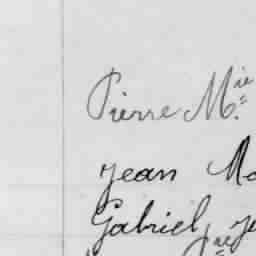 Pierre M.ie
Jean Ma
Gabriel, Je